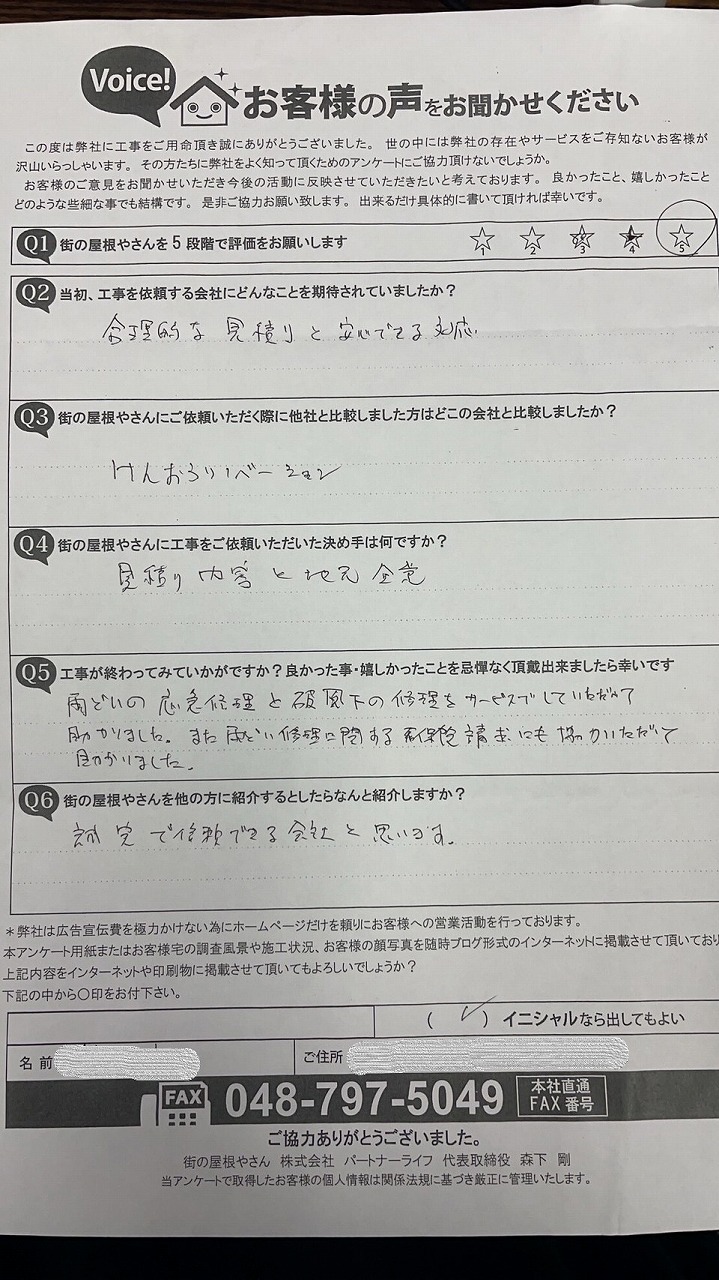 Voice! お客様の声をお聞かせください
この度は弊社に工事をご用命頂き誠にありがとうございました。 世の中には弊社の存在やサービスをご存知ないお客様が
沢山いらっしゃいます。 その方たちに弊社をよく知って頂くためのアンケートにご協力頂けないでしょうか。
お客様のご意見をお聞かせいただき今後の活動に反映させていただきたいと考えております。 良かったこと、嬉しかったこと
どのような些細な事でも結構です。 是非ご協力お願い致します。 出来るだけ具体的に書いて頂ければ幸いです。
Q1 街の屋根やさんを5段階で評価をお願いします 1 2 3 4 5
Q2 当初、工事を依頼する会社にどんなことを期待されていましたか？
合理的な見積りと安心できる対応
Q3 街の屋根やさんにご依頼いただく際に他社と比較しました方はどこの会社と比較しましたか？
けんおうリノベーション
Q4 街の屋根やさんに工事をご依頼いただいた決め手は何ですか？
見積り内容と地元企業
Q5 工事が終わってみていかがですか？良かった事・嬉しかったことを忌憚なく頂戴出来ましたら幸いです
雨どいの応急修理と破風下の修理をサービスでしていただいて
助かりました。また雨どい修理に関する保険請求にも協力いただいて
助かりました。
Q6 街の屋根やさんを他の方に紹介するとしたらなんと紹介しますか？
誠実で信頼できる会社と思います。
＊弊社は広告宣伝費を極力かけない為にホームページだけを頼りにお客様への営業活動を行っております。
本アンケート用紙またはお客様宅の調査風景や施工状況、お客様の顔写真を随時ブログ形式のインターネットに掲載させて頂いており
上記内容をインターネットや印刷物に掲載させて頂いてもよろしいでしょうか？
下記の中から〇印をお付下さい。
（ ✓ ）イニシャルなら出してもよい
名 前 ご住所
FAX 048-797-5049 本社直通 FAX 番号
ご協力ありがとうございました。
街の屋根やさん 株式会社 パートナーライフ 代表取締役 森下 剛
当アンケートで取得したお客様の個人情報は関係法規に基づき厳正に管理いたします。